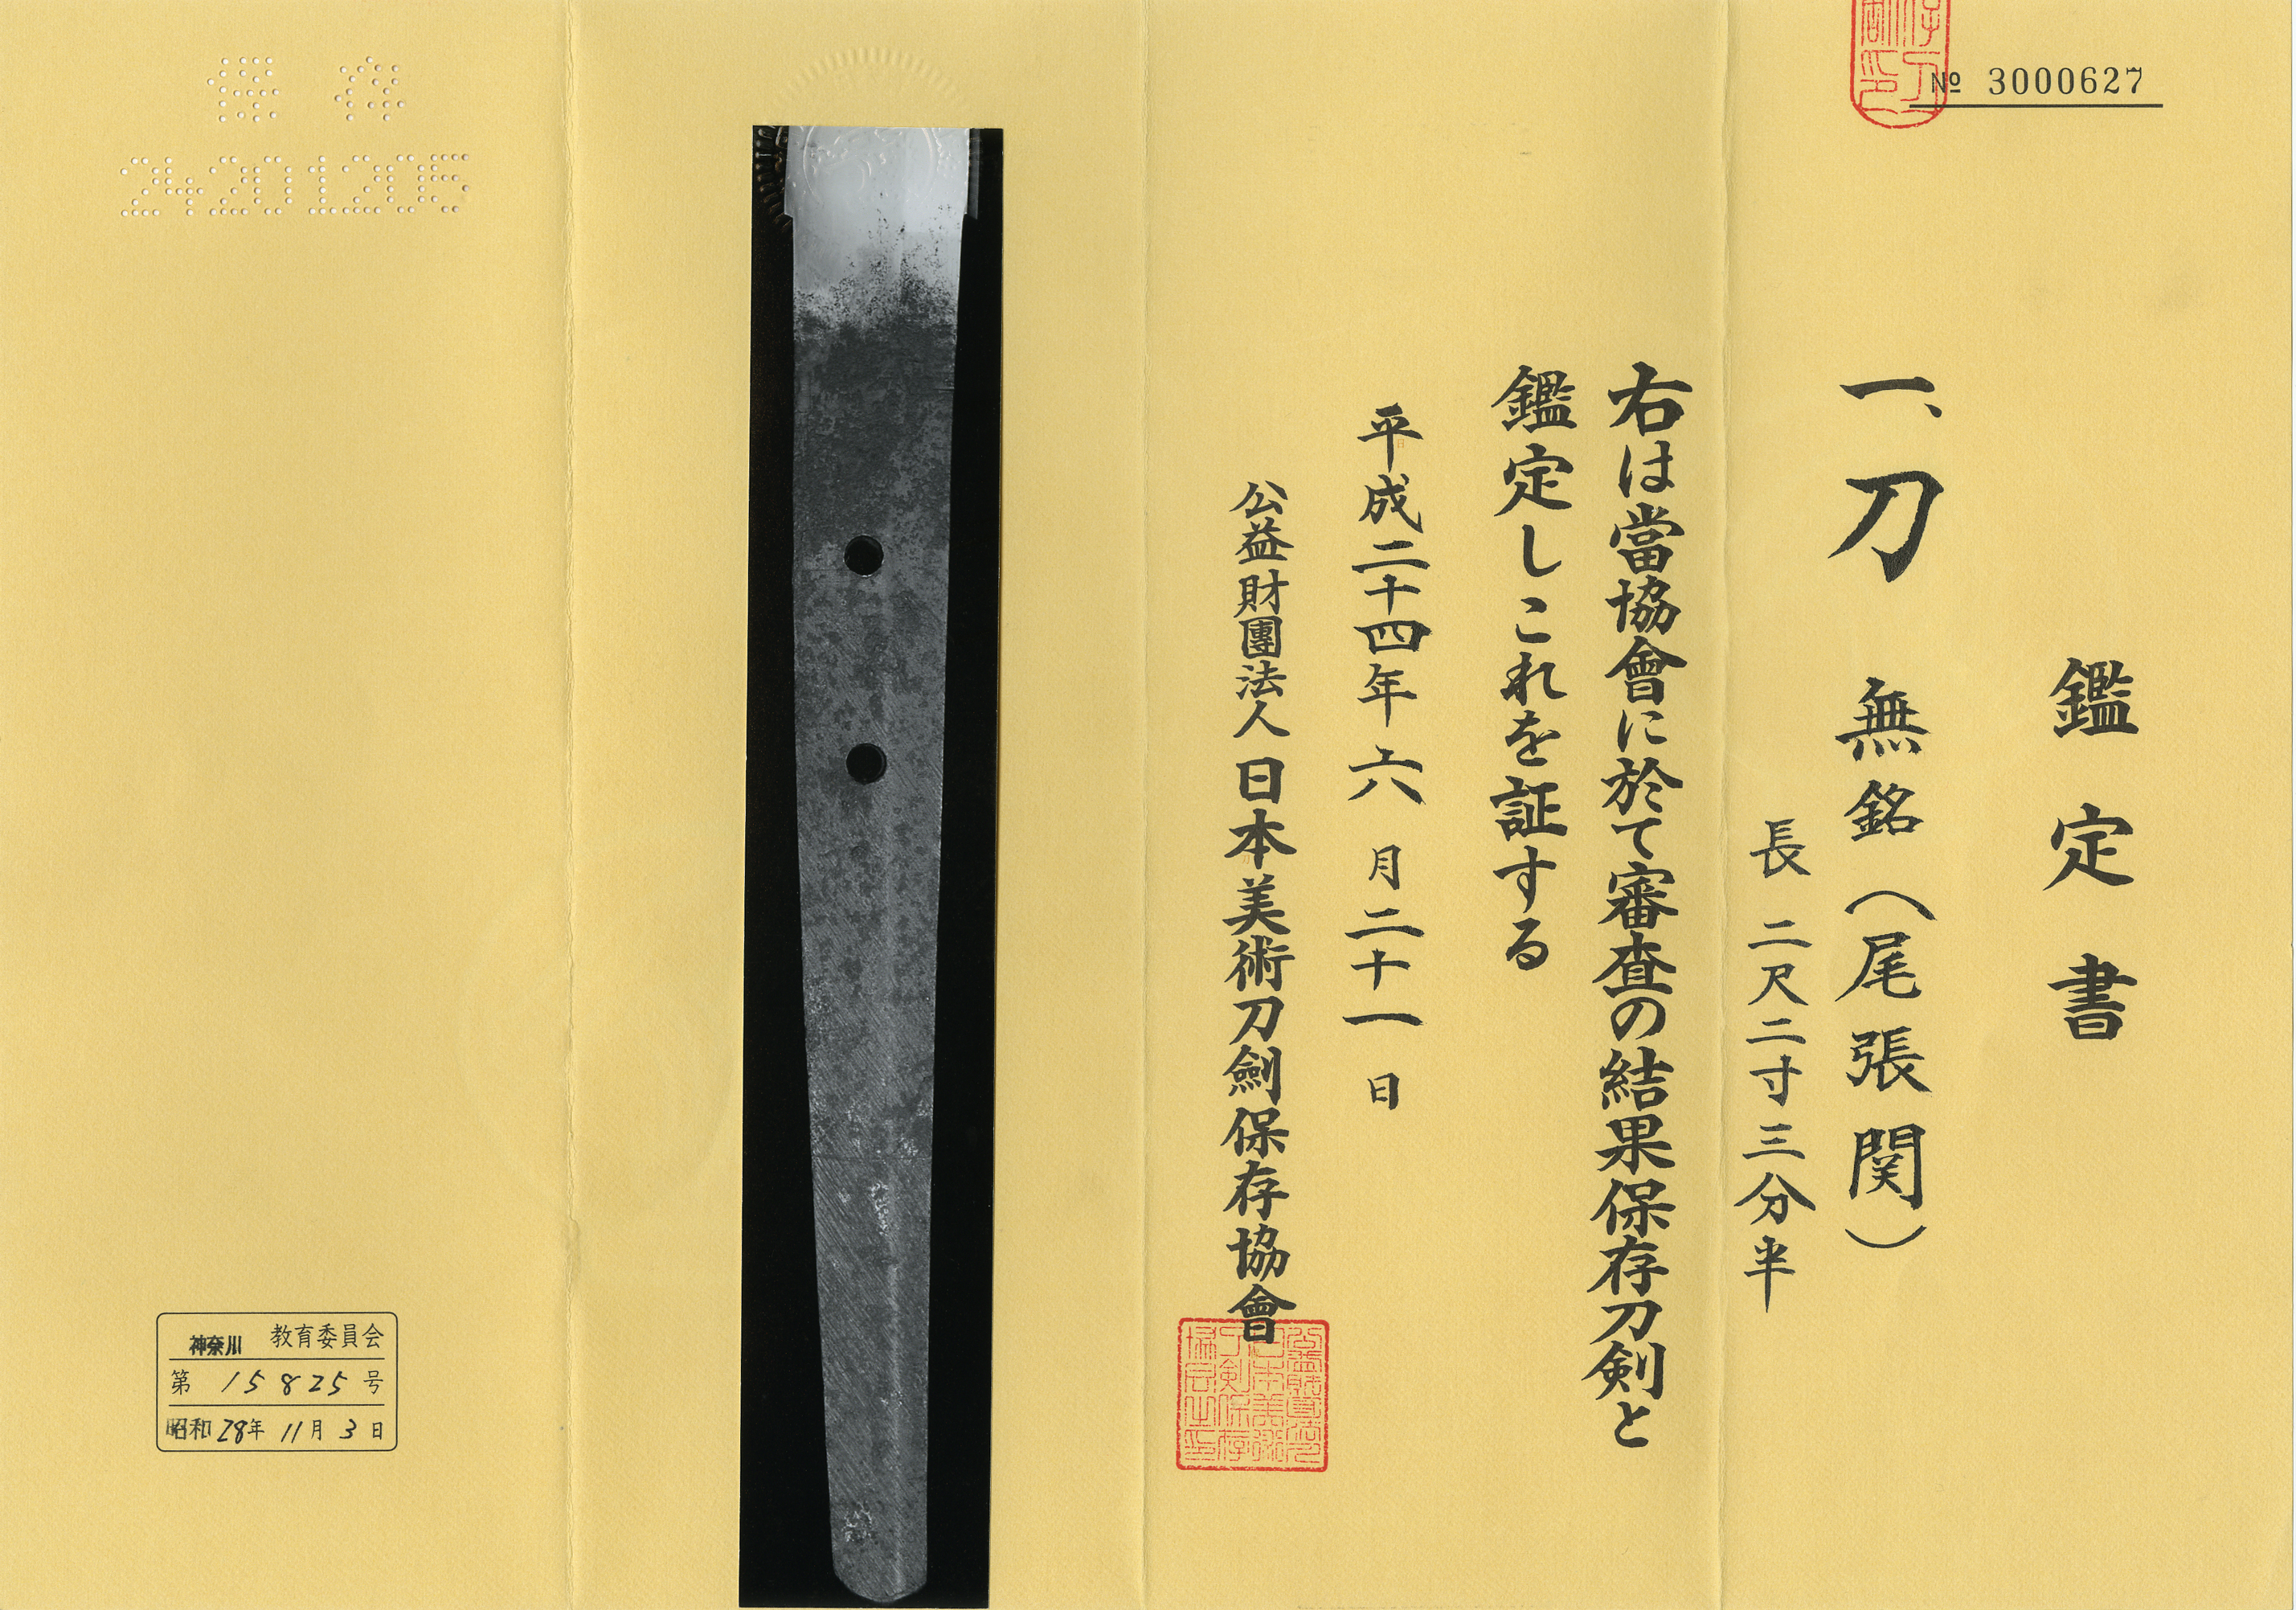 № 3000627
鑑定書
一、刀 無銘(尾張関)
長 二尺二寸三分半
右は當協會に於て審査の結果保存刀剣と
鑑定しこれを証する
平成二十四年六月二十一日
公益財團法人 日本美術刀劍保存協會
保存
24201205
神奈川 教育委員会
第 15825 号
昭和28年 11月 3日